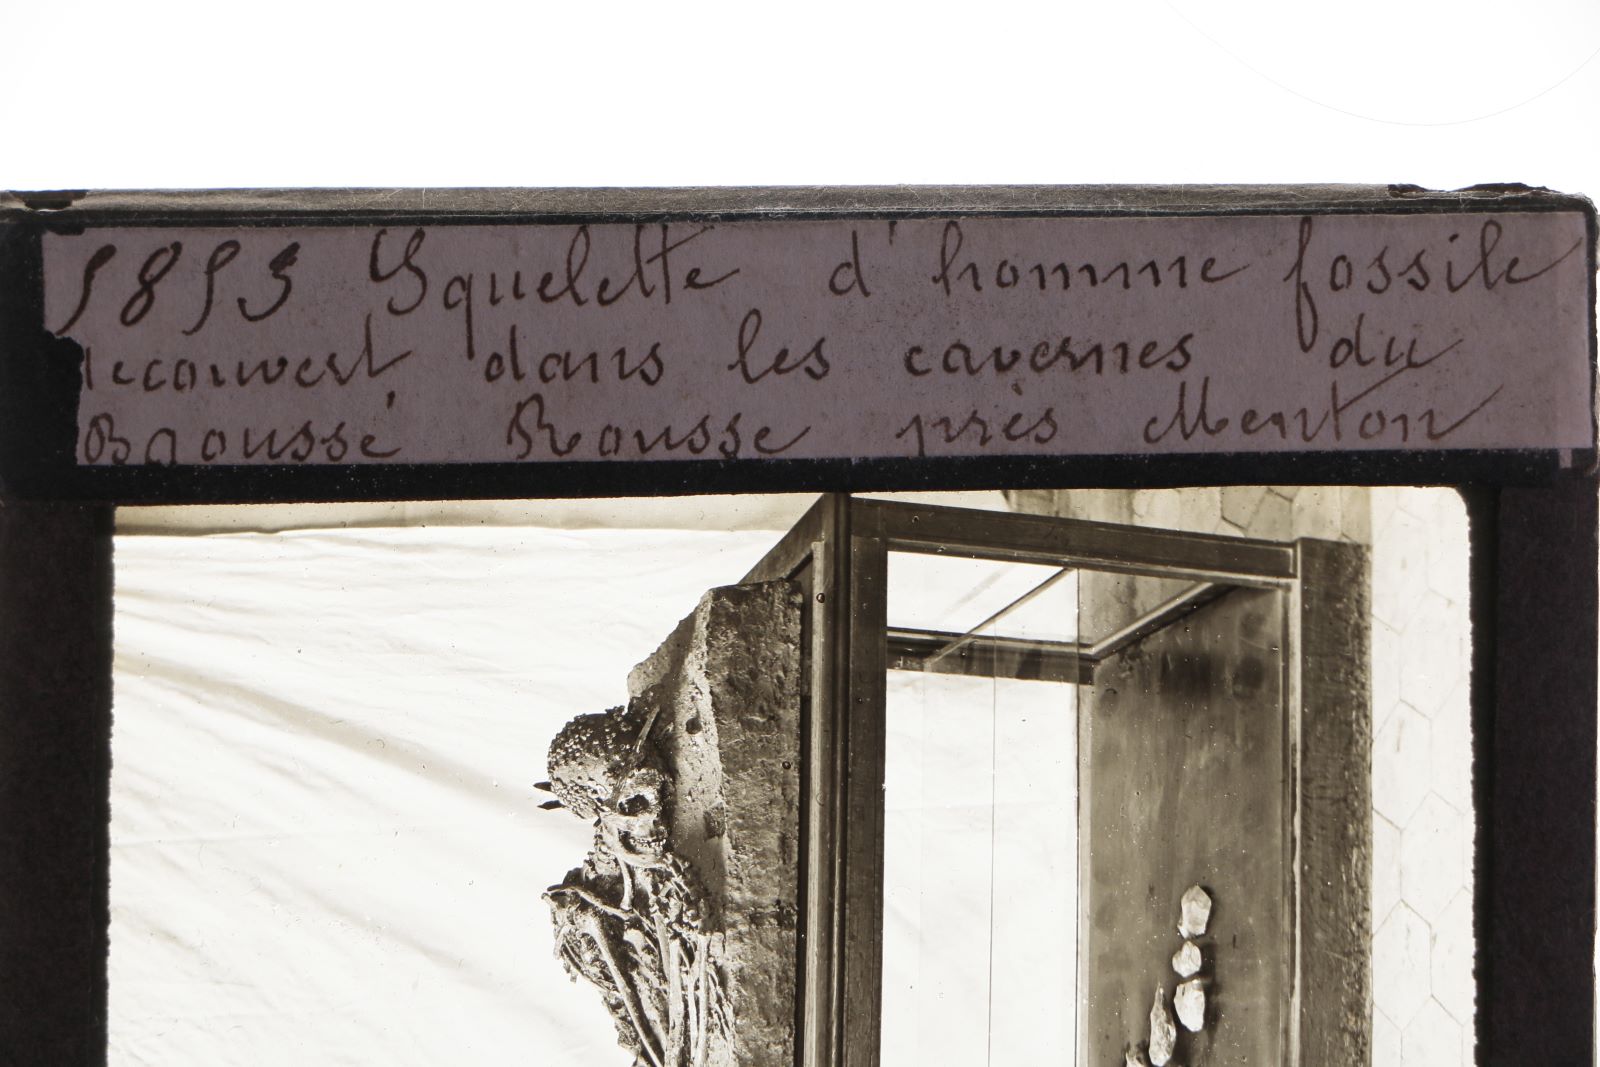 5853 Squelette d'homme fossile
découvert dans les cavernes du
Baoussé Rousse près Menton